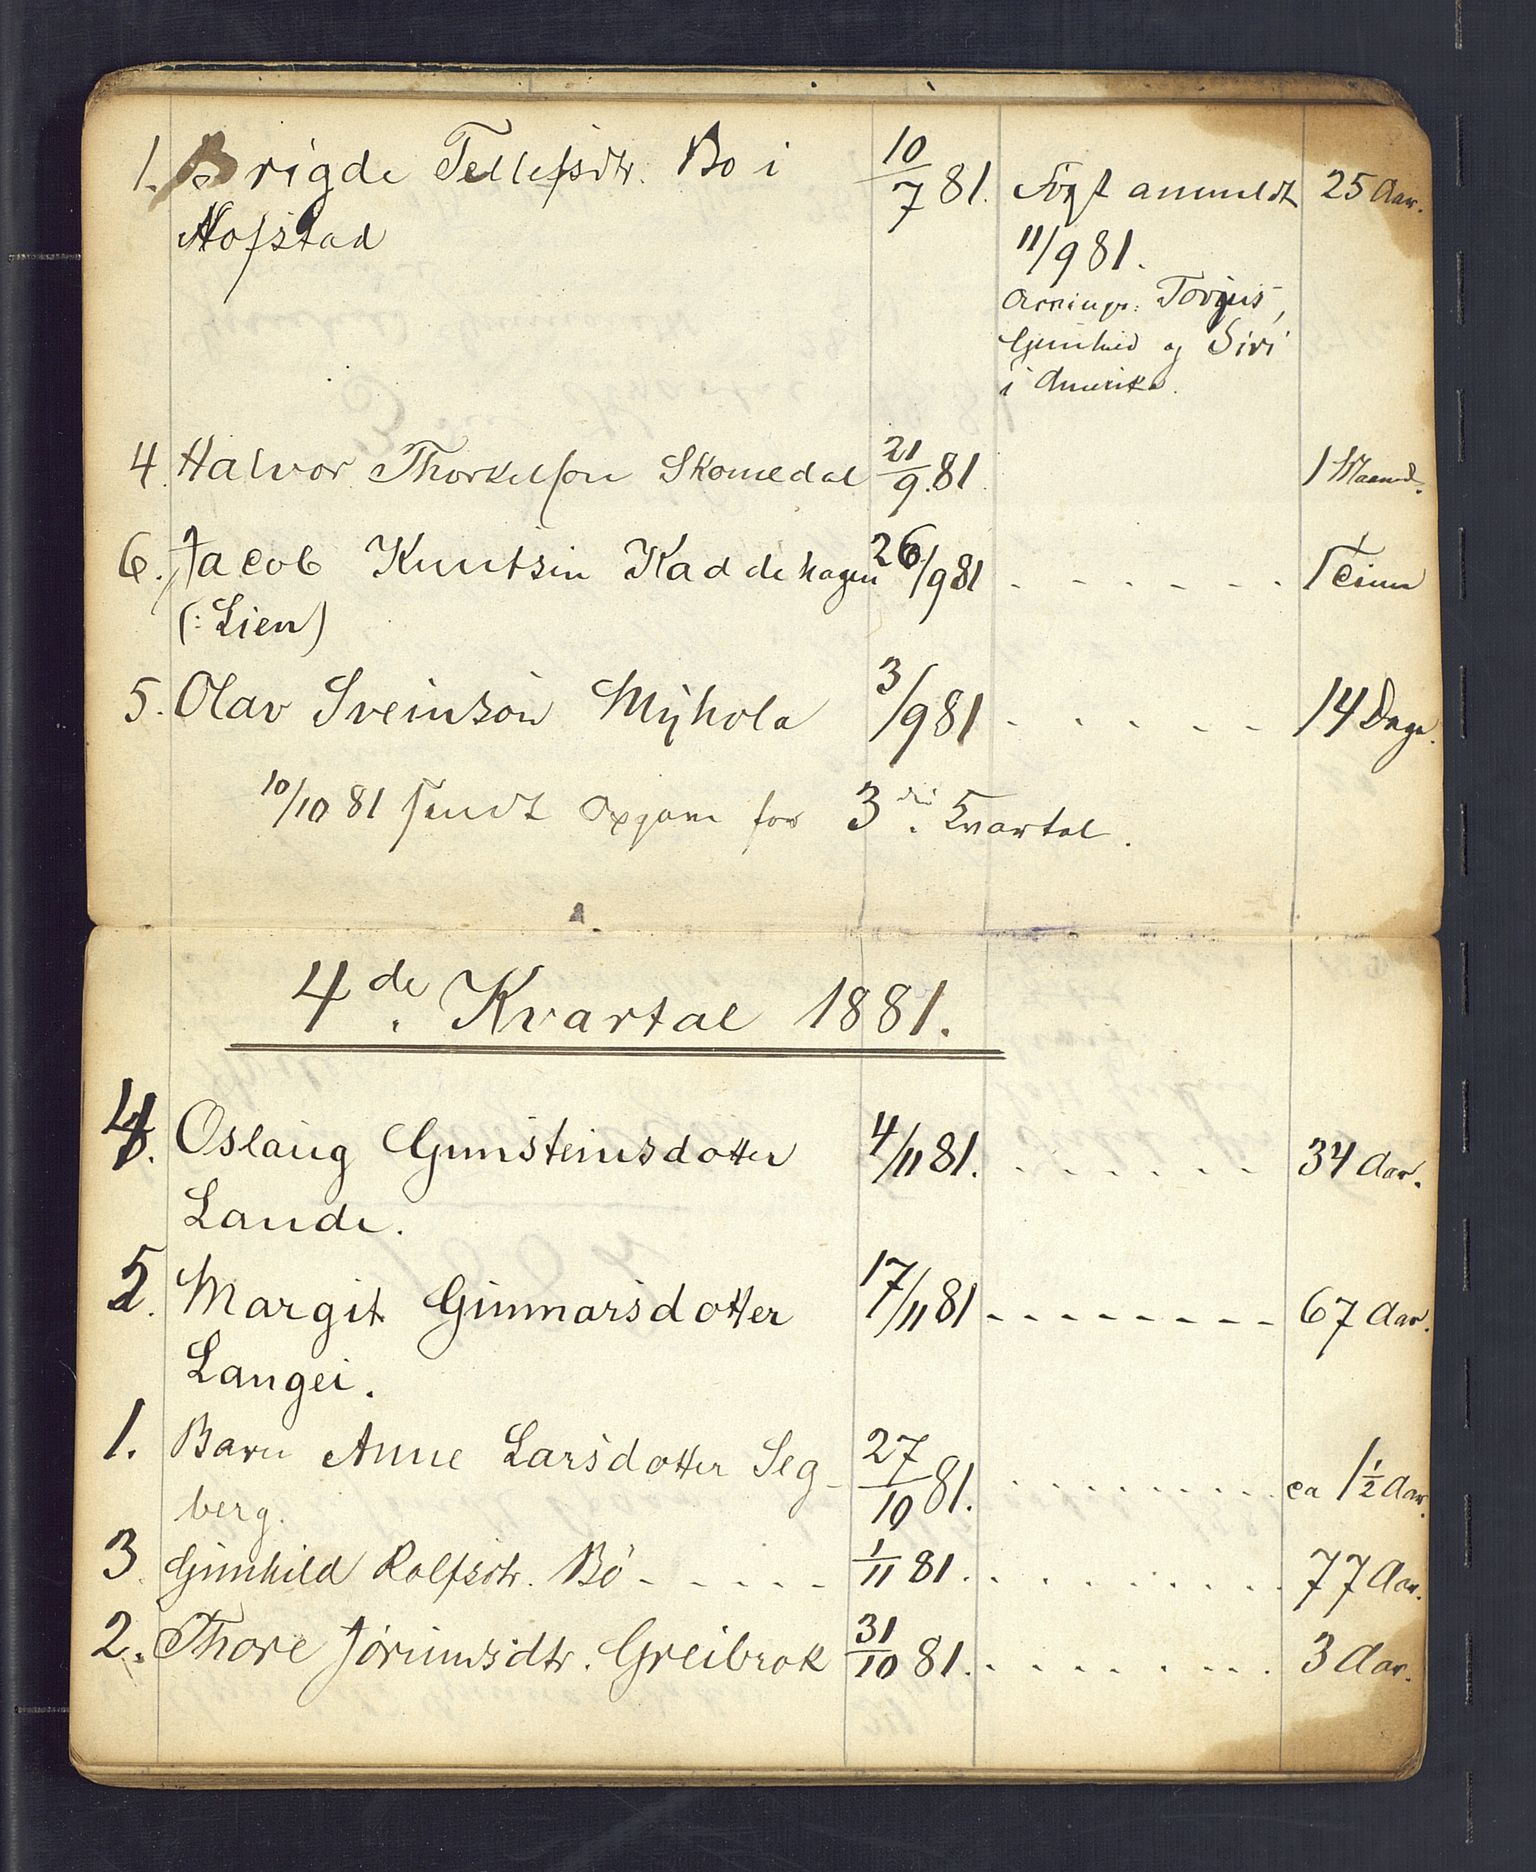 1. Brigde Tellefsdtr. Bo i 10/7 81. Først anmeldt 25 Aar.
Hofstad 11/9 81.
Arvinger: Torjus,
Gunhild og Siri
i Amerika.
4. Halvor Thorkelson Skomedal 21/9.81. 1 Maaned.
6. Jacob Knutson Kaddehagen 26/9 81 - - - - - - 1 Time
(: Lien)
5. Olav Sveinson Myhola 3/9 81 - - - - - 14 Dage.
10/10 81 sendt Opgave for 3die Kvartal.
4de. Kvartal 1881.
4. Oslaug Gunsteinsdotter 4/11 81. - - - - - - 34 Aar.
Lande.
5. Margit Gunnarsdotter 17/11 81 - - - - - - - - 67 Aar.
Langei.
1. Barn Anne Larsdotter Seg- 27/10 81. - - - - - - - - ca 1 1/2 Aar.
berg.
3. Gunhild Rolfsdtr. Bö - - - - - 1/11 81. - - - - - - - - 77 Aar.
2. Thore Jörundsdtr. Greibrok 31/10 81. - - - - - - - - 3 Aar.